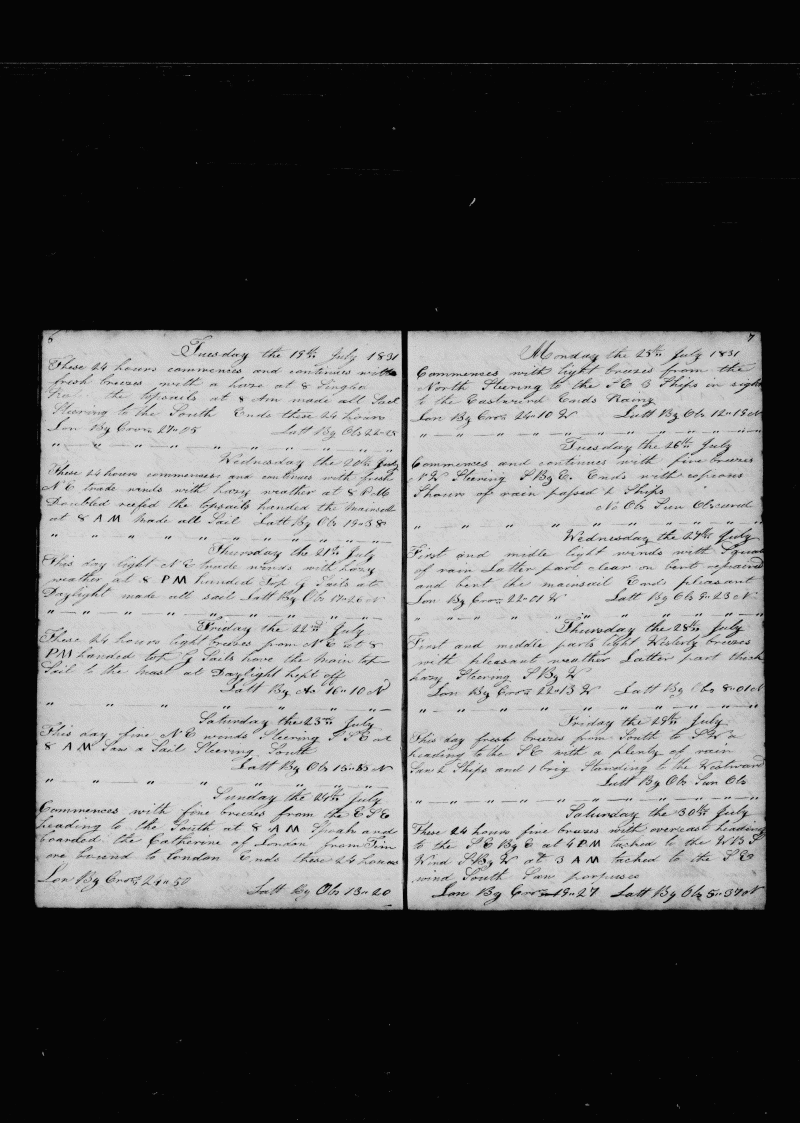 6
Tuesday the 19th July 1831
These 24 hours commences and continues with
fresh breezes with a haze at 8 Single
the topsails at 8 Am made all Sail
Stearing to the South Ends these 24 hours
Lon By Cro 27"08 Latt By Obs 22=28
Wednesday the 20th July
These 24 hours commences and continues with fresh
NE trade winds with hazy weather at 8 PM
Doubled reefed the topsails handed the mainsail
at 8 AM Made all Sail Latt By Obs 19"38
Thursday the 21st July
This day light NE trade winds with hazy
weather at 8 PM handed Top G Sails at
Daylight made all sail Latt By Obs 17"26 N
Friday the 22nd July
These 24 hours light breezes from NE at 8
PM handed top G Sails hove the main top
Sail to the mast at Daylight kept off
Latt By Obs 16"10 N
Saturday the 23rd July
This day fine NE winds Steering SSE at
8 AM Saw a Sail Steering South
Latt By Obs 15" N
Sunday the 24th July
Commences with fine breezes from the ESE
heading to the South at 8 AM Spoak and
boarded the Catherine of London from
bound to London Ends these 24 hours
Lon By Cro 24"50
Latt By Obs 13"20
7
Monday the 25th July 1831
Commences with light breezes from the
North Steering to the SE 3 Ships in sight
to the Eastward Ends Rainy
Lon By Cro 24"10 W Latt By Obs 12"15 N
Tuesday the 26th July
Commences and continues with fine breezes
Steering S By E Ends with copious
Showers of rain passed 2 Ships
No Obs Sun Obscured
Wednesday the 27th July
First and middle light winds with Squals
of rain Latter part clear on bent repaired
and bent the mainsail Ends pleasant
Lon By Cro 22"01 W Latt By Obs 9"23 N
Thursday the 28th July
First and middle parts light Westerly breezes
with pleasant weather Latter part thick
hazy Steering S By W
Lon By Cro 22"13 W Latt By Obs 8"01 N
Friday the 29th July
This day fresh breezes from South to SW
heading to the SE with a plenty of rain
Saw 2 Ships and 1 brig Standing to the Westward
Latt By Obs Sun Obs
Saturday the 30th July
These 24 hours fine breezes with overcast heading
to the SE By E at 4 PM tacked to the W B S
Wind S By W at 3 AM tacked to the SE
wind South Saw porpuses
Lon By Cro 19"27 Latt By Obs 5"37 N